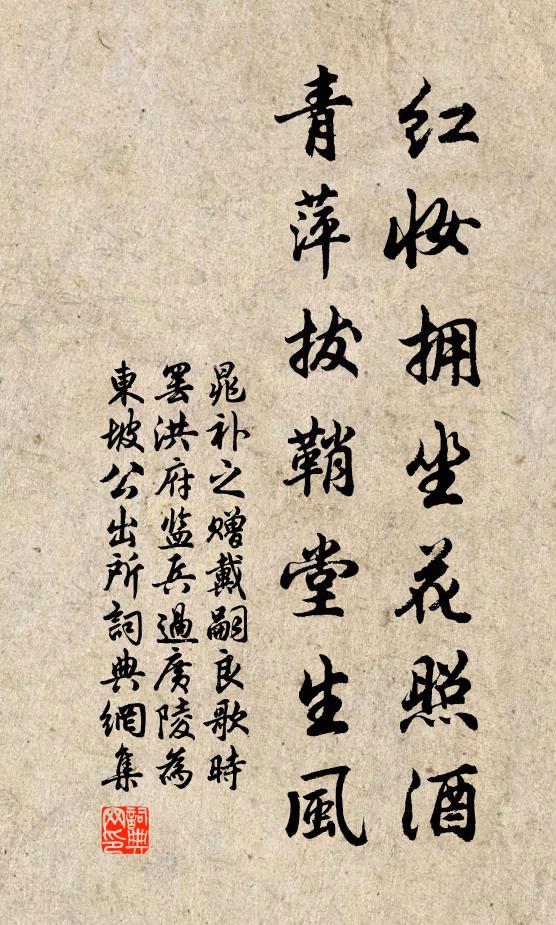 红妆拥坐花照酒
青萍拔鞘堂生風
晁补之赠戴嗣良歌時
罢洪府监兵過廣陵為
東坡公出所詞典網集
詞典网印